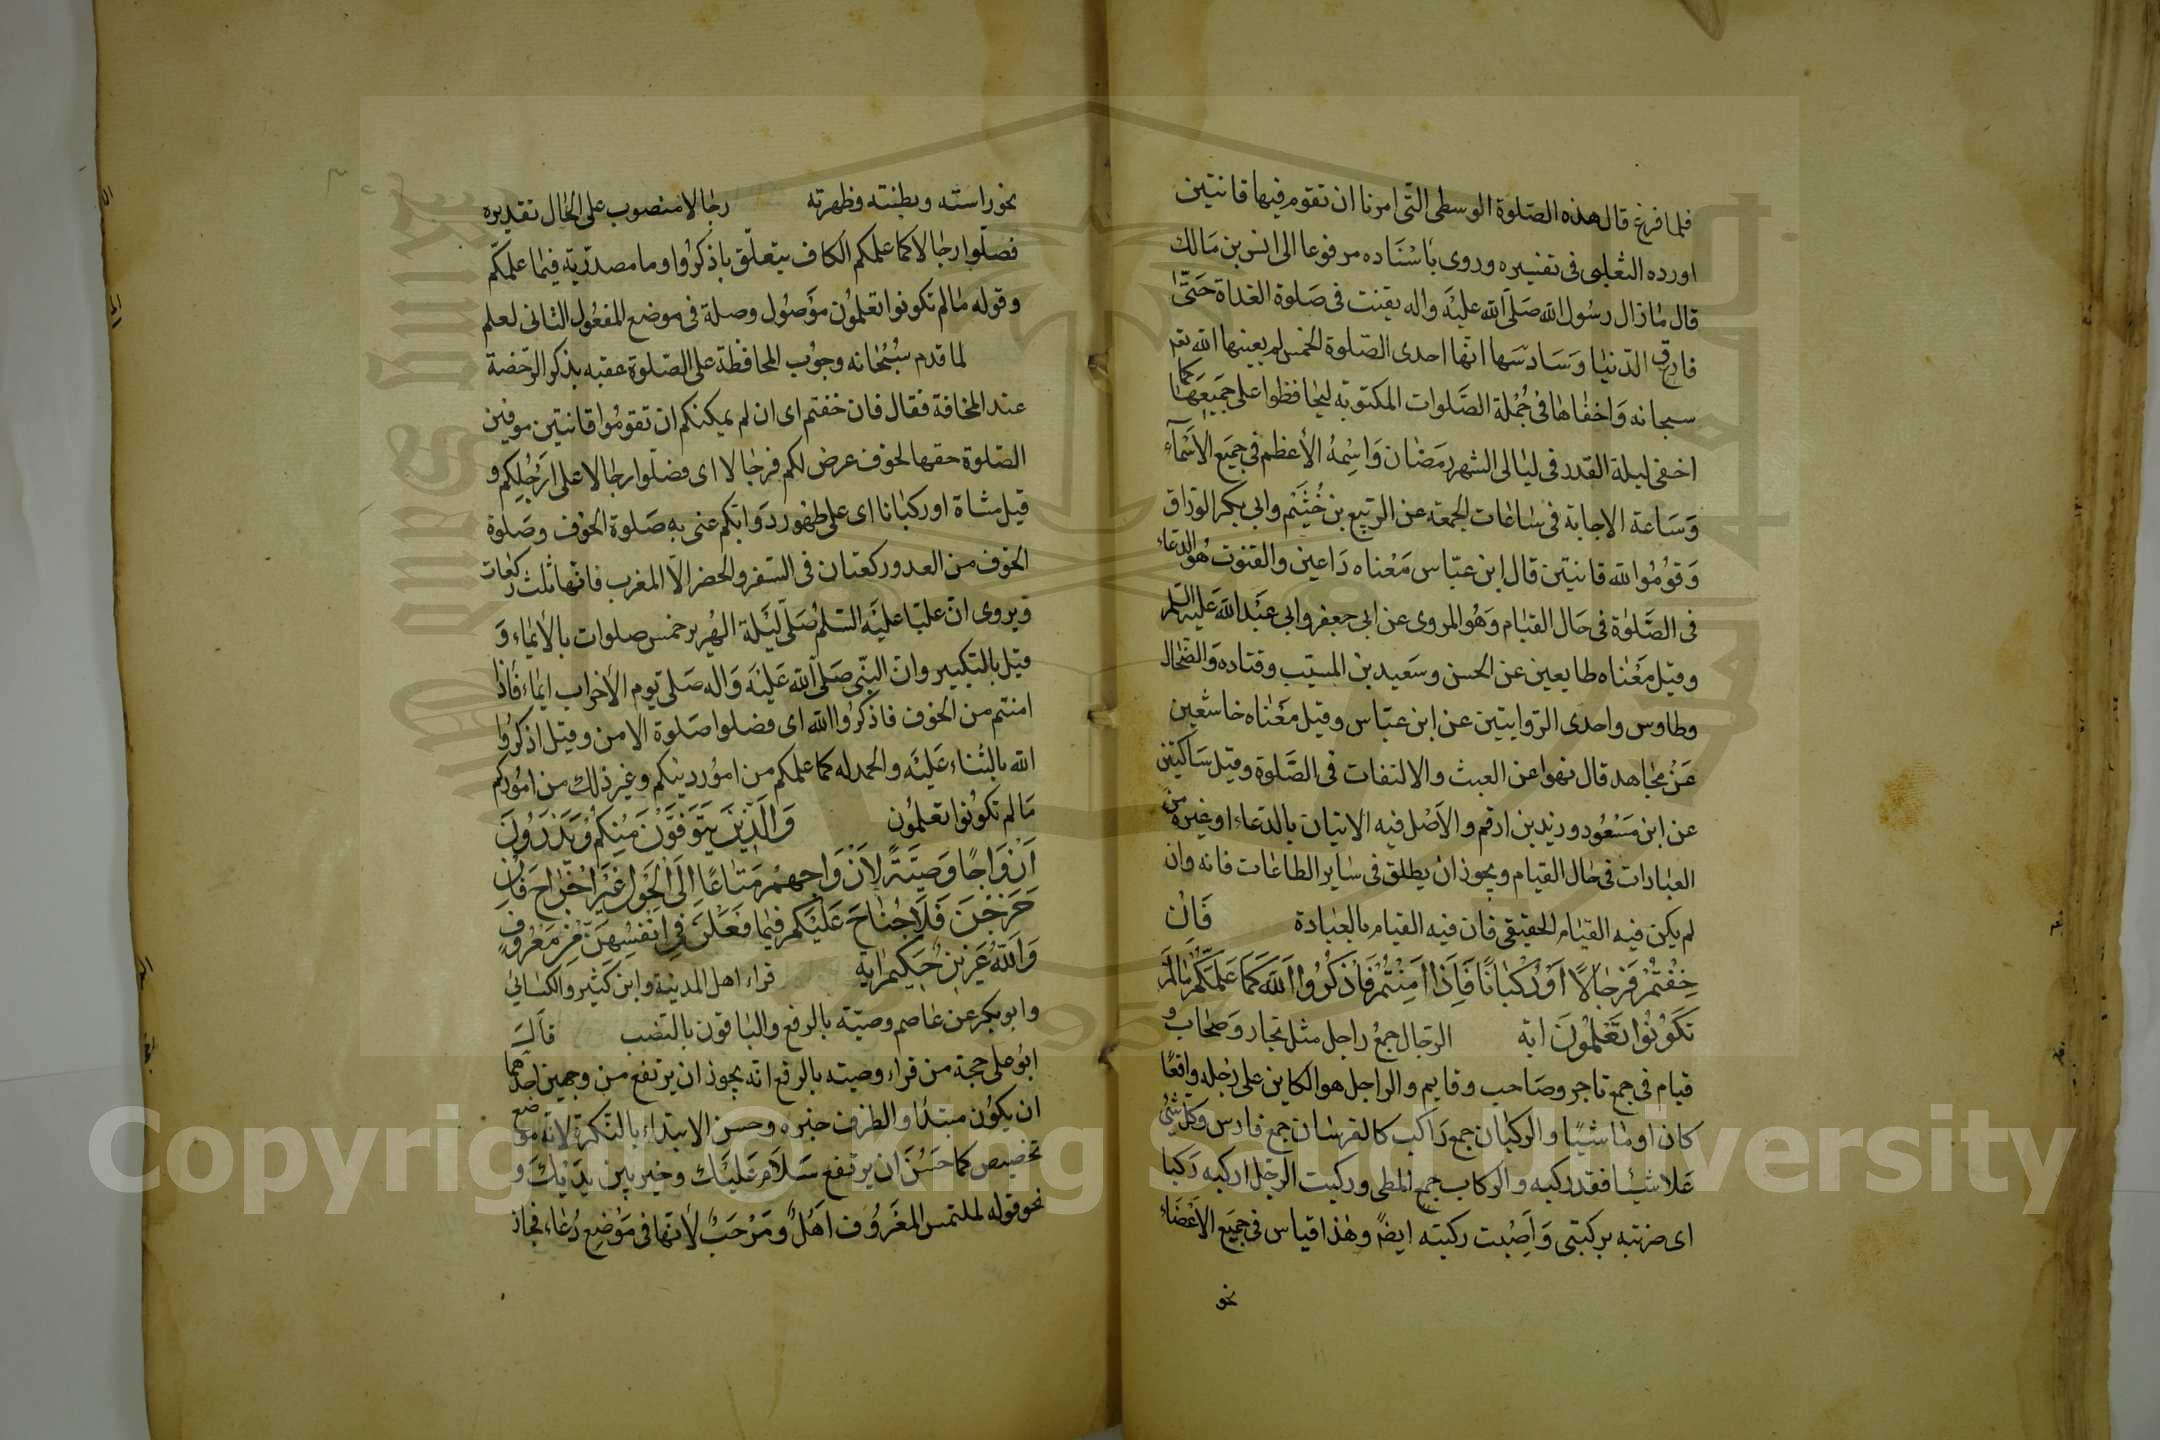 فلما فرغ قال هذه الصلوة الوسطى التى امرنا ان نقوم فيها قانتين
اورده الثعلبى فى تفسيره وروى باسناده مرفوعا الى انس بن مالك
قال ما زال رسول الله صلى الله عليه واله يقنت فى صلوة الغداة حتى
فارق الدنيا وسادسها انها احدى الصلوة الخمس لم يعينها الله تعم
سبحانه واخفاها فى جملة الصلوات المكتوبة ليحافظوا على جميعها كما
اخفى ليلة القدر فى ليالى الشهر رمضان واسمه الأعظم فى جميع الاسماء
وساعة الاجابة فى ساعات الجمعة عن الربيع بن خثيم وابى بكر الوراق
وقوموا لله قانتين قال ابن عباس معناه داعين والقنوت هو الدعاء
فى الصلوة فى حال القيام وهو المروى عن ابى جعفر وابى عبد الله عليه السلم
وقيل معناه طايعين عن الحسن وسعيد بن المسيب وقتاده والضحاك
وطاوس واحدى الروايتين عن ابن عباس وقيل معناه خاشعين
عن مجاهد قال نهوا عن العبث والالتفات فى الصلوة وقيل ساكتين
عن ابن مسعود وزيد بن ارقم والاصل فيه الاتيان بالدعاء او غيره من
العبادات فى حال القيام ويجوز ان يطلق فى ساير الطاعات فانه وان
لم يكن فيه القيام الحقيقى فان فيه القيام بالعبادة فَاِنْ
خِفْتُمْ فَرِجَالًا اَوْ رُكْبَانًا فَاِذَا اَمِنْتُمْ فَاذْكُرُوا اللهَ كَمَا عَلَّمَكُمْ مَالَمْ
تَكُونُوا تَعْلَمُونَ اية الرجال جمع راجل مثل تجار وصحاب و
قيام فى جمع تاجر وصاحب وقايم والراجل هو الكاين على رجله واقفا
كان او ماشيا والركبان جمع راكب كالفرسان جمع فارس وكل شئ
علا شيئا فقد ركبه والركاب جمع المطى وركبت الرجل اركبه ركبا
اى ضربته بركبتى واصبت ركبته ايضم وهذا قياس فى جميع الاعضاء
نحو
نحو راسته وبطنته وظهرته رجالا منصوب على الحال تقديره
فصلوا رجالا كما علمكم الكاف يتعلق باذكروا وما مصدرية فيما علمكم
وقوله مالم تكونوا تعلمون موصول وصلة فى موضع المفعول الثانى لعلم
لما قدم سبحانه وجوب المحافظة على الصلوة عقبه بذكر الرخصة
عند المخافة فقال فان خفتم اى ان لم يمكنكم ان تقوموا قانتين موفين
الصلوة حقها لخوف عرض لكم فرجالا اى فصلوا رجالا على ارجلكم و
قيل مشاة او ركبانا اى على ظهور دوابكم عنى به صلوة الخوف وصلوة
الخوف من العدو ركعتان فى السفر والحضر الا المغرب فانها ثلث ركعات
ويروى ان عليا عليه السلم صلى ليلة الهرير خمس صلوات بالأيماء و
قيل بالتكبير وان النبى صلى الله عليه واله صلى يوم الأحزاب ايماء فاذا
امنتم من الخوف فاذكروا الله اى فصلوا صلوة الامن وقيل اذكروا
الله بالثناء عليه والحمد له كما علمكم من امور دينكم وغير ذلك من اموركم
مالم تكونوا تعلمون وَالَّذِينَ يُتَوَفَّوْنَ مِنْكُمْ وَيَذَرُونَ
اَزْوَاجًا وَصِيَّةً لِاَزْوَاجِهِمْ مَتَاعًا اِلَى الْحَوْلِ غَيْرَ اِخْرَاجٍ فَاِنْ
خَرَجْنَ فَلَا جُنَاحَ عَلَيْكُمْ فِيمَا فَعَلْنَ فِى اَنْفُسِهِنَّ مِنْ مَعْرُوفٍ
وَاللهُ عَزِيزٌ حَكِيمٌ اية قراء اهل المدينة وابن كثير والكسائي
وابو بكر عن عاصم وصية بالرفع والباقون بالنصب قال
ابو على حجة من قراء وصيته بالرفع انه يجوز ان يرتفع من وجهين احدهما
ان يكون مبتدأ والظرف خبره وحسن الابتداء بالنكرة لانه موضع
تخصيص كما حسن ان يرتفع سلام عليك وخير بين يديك و
نحو قوله لملتمس المعروف اهل ومرحب لأنها فى موضع دعاء فجاز
Copyright © King Saud University